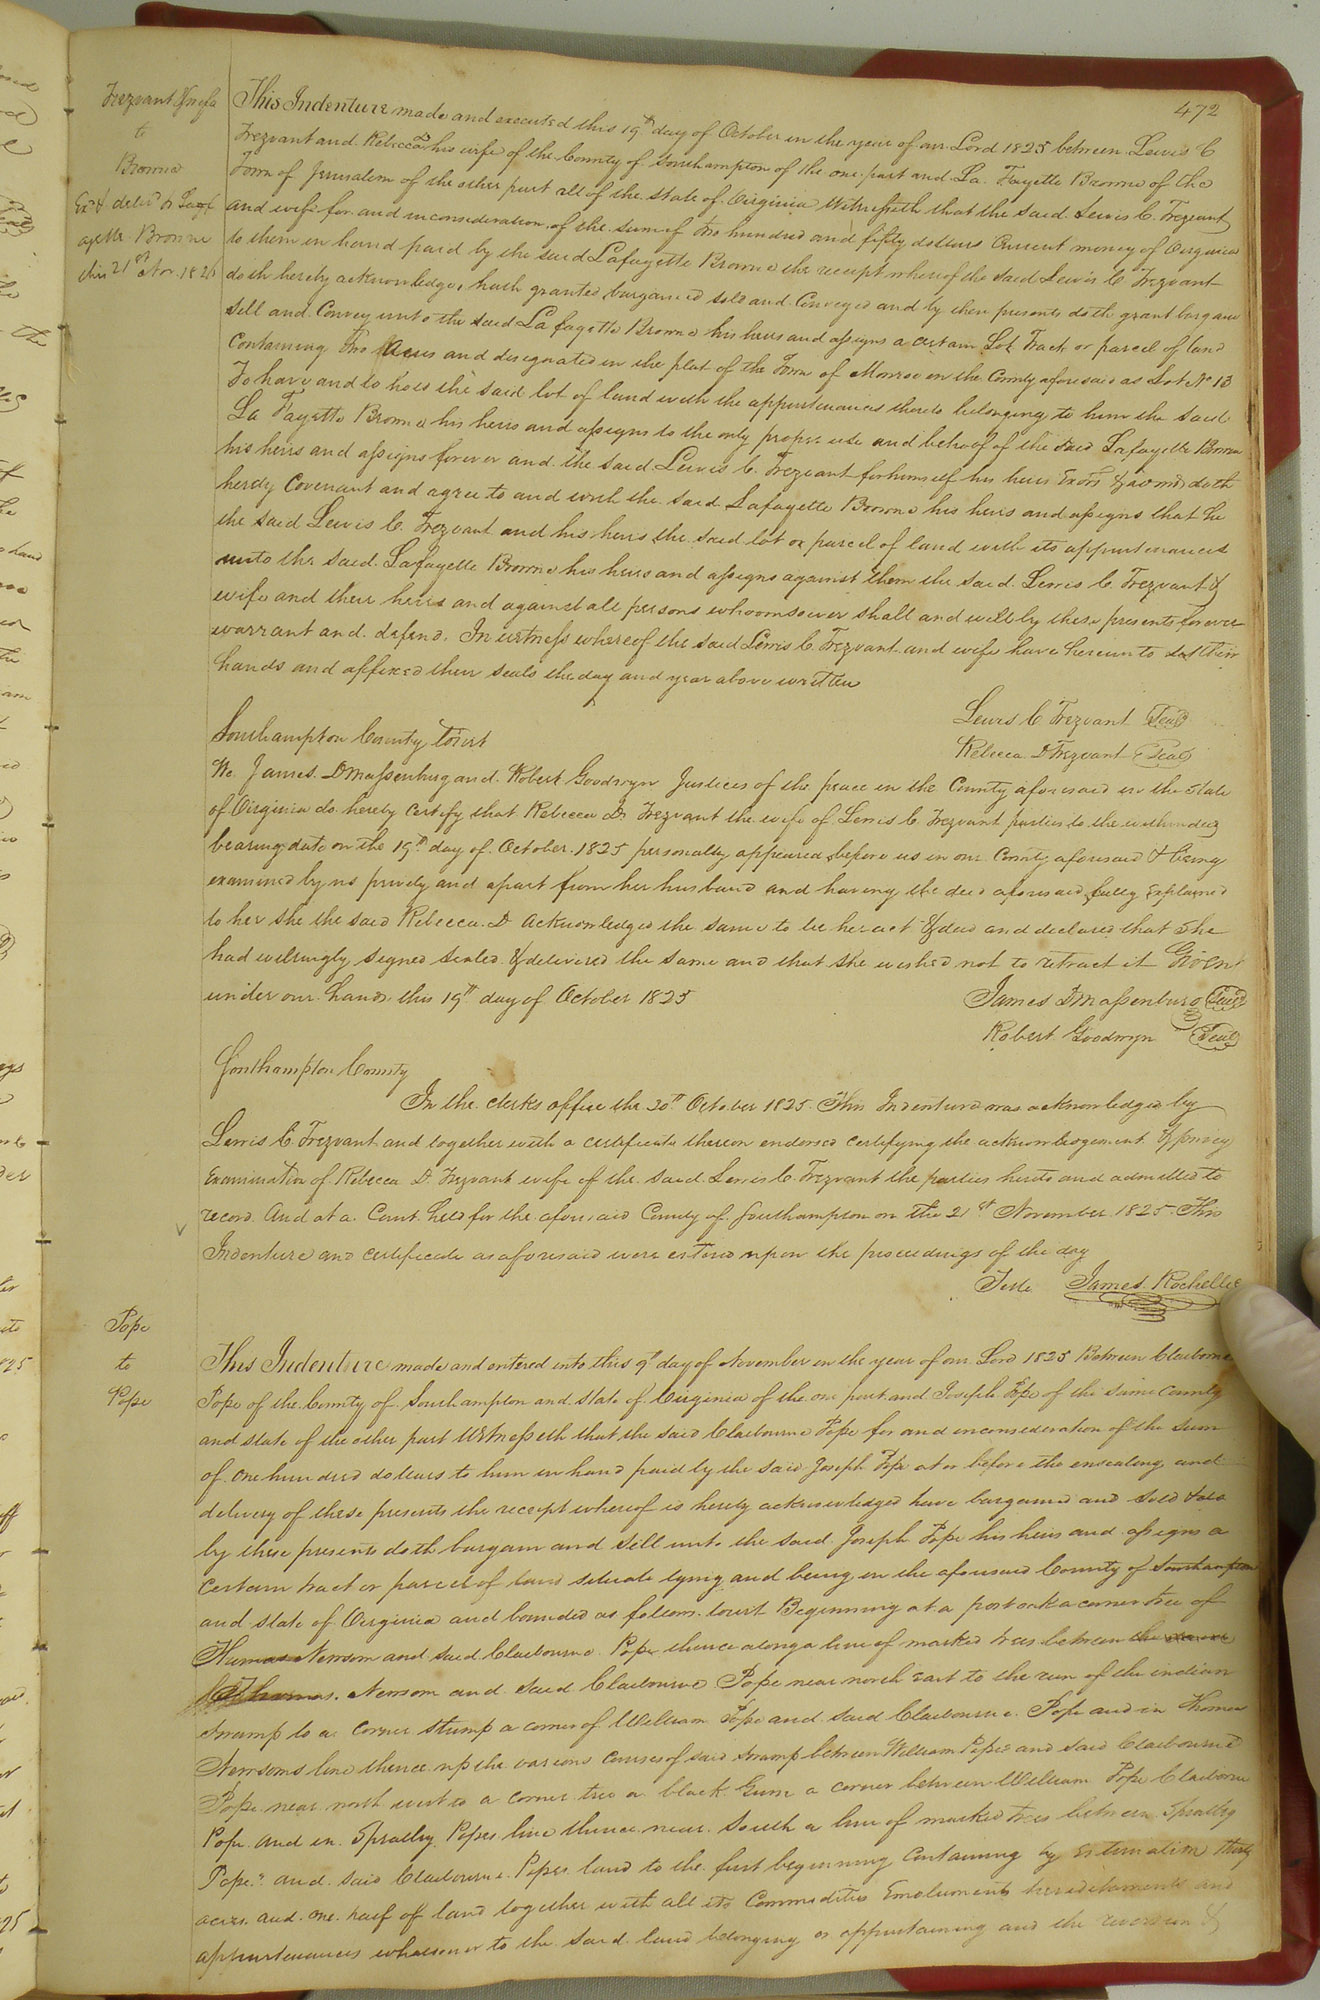 472
Trezvant & wife
to
Browne
Ex'd & deliv'd to Laf
ayette Browne
this 21st Nov. 1826
This Indenture made and executed this 19th day of October in the year of our Lord 1825 between Lewis C
Trezvant and Rebecca D his wife of the County of Southampton of the one part and La Fayette Browne of the
Town of Jerusalem of the other part all of the state of Virginia Witnesseth that the said Lewis C. Trezvant
and wife for and in consideration of the sum of two hundred and fifty dollars Current money of Virginia
to them in hand paid by the said Lafayette Browne the receipt whereof the said Lewis C Trezvant
doth hereby acknowledge, hath granted bargained sold and Conveyed and by these presents doth grant bargain
sell and Convey unto the said La fayette Browne his heirs and assigns a certain Lot Tract or parcel of land
Containing two Acres and designated in the plat of the Town of Monroe in the County aforesaid as Lot No 13
To have and to hold the said lot of land with the appurtenances thereto belonging to him the said
La Fayette Browne his heirs and assigns to the only proper use and behoof of the said Lafayette Browne
his heirs and assigns forever and the said Lewis C. Trezvant for himself his heirs Exors & admrs doth
hereby Covenant and agree to and with the said Lafayette Browne his heirs and assigns that he
the said Lewis C. Trezvant and his heirs the said lot or parcel of land with its appurtenances
unto the said Lafayette Browne his heirs and assigns against them the said Lewis C. Trezvant &
wife and their heirs and against all persons whoomsoever shall and will by these presents forever
warrant and defend. In witness whereof the said Lewis C. Trezvant and wife have hereunto set their
hands and affixed their seals the day and year above written
Lewis C Trezvant Seal
Rebecca D Trezvant Seal
Southampton County towit
We James D Massenburg and Robert Goodwyn Justices of the peace in the County aforesaid in the state
of Virginia do hereby certify that Rebecca D. Trezvant the wife of Lewis C Trezvant parties to the within deed
bearing date on the 19th day of October 1825 personally appeared before us in our County aforesaid & being
examined by us privily and apart from her husband and having the deed aforesaid fully explained
to her she the said Rebecca D. acknowledged the same to be her act & deed and declared that she
had willingly signed sealed & delivered the same and that she wished not to retract it Given
under our hands this 19th day of October 1825
James D Massenburg Seal
Robert Goodwyn Seal
Southampton County
In the clerks office the 20th October 1825. This Indenture was acknowledged by
Lewis C Trezvant and together with a certificate thereon endorsed certifying the acknowledgement & privy
Examination of Rebecca D. Trezvant wife of the said Lewis C. Trezvant the parties hereto and admitted to
record. And at a Court held for the aforesaid County of Southampton on the 21st November 1825. This
Indenture and certificate as aforesaid were entered upon the proceedings of the day
Teste James Rochelle
Pope
to
Pope
This Indenture made and entered into this 9th day of November in the year of our Lord 1825 Between Claiborne
Pope of the County of Southampton and state of Virginia of the one part and Joseph Pope of the same County
and state of the other part Witnesseth that the said Claibourne Pope for and in consideration of the sum
of one hundred dollars to him in hand paid by the said Joseph Pope at or before the ensealing and
delivery of these presents the receipt whereof is hereby acknowledged have bargained and sold &
by these presents doth bargain and sell unto the said Joseph Pope his heirs and assigns a
Certain tract or parcel of land situate lying and being in the aforesaid County of Southampton
and state of Virginia and bounded as follows towit Beginning at a post oak a corner tree of
Newsom and said Claibourne Pope thence along a line of marked trees between
Thomas Newsom and said Claibourne Pope near north East to the run of the indian
swamp to a corner stump a corner of William Pope and said Claibourne Pope and in Thomas
Newsoms line thence up the various Courses of said swamp between William Popes and said Claibourne
Pope near north west to a corner tree a black Gum a corner between William Pope Claiborne
Pope and in Spratley Popes line thence near South a line of marked trees between Spratley
Pope's and said Claibourne Popes land to the first beginning Containing by Estimation thirty
acres and one half of land together with all its Commodities Emoluments hereditaments and
appurtenances whatsoever to the said land belonging or appertaining and the reversion &